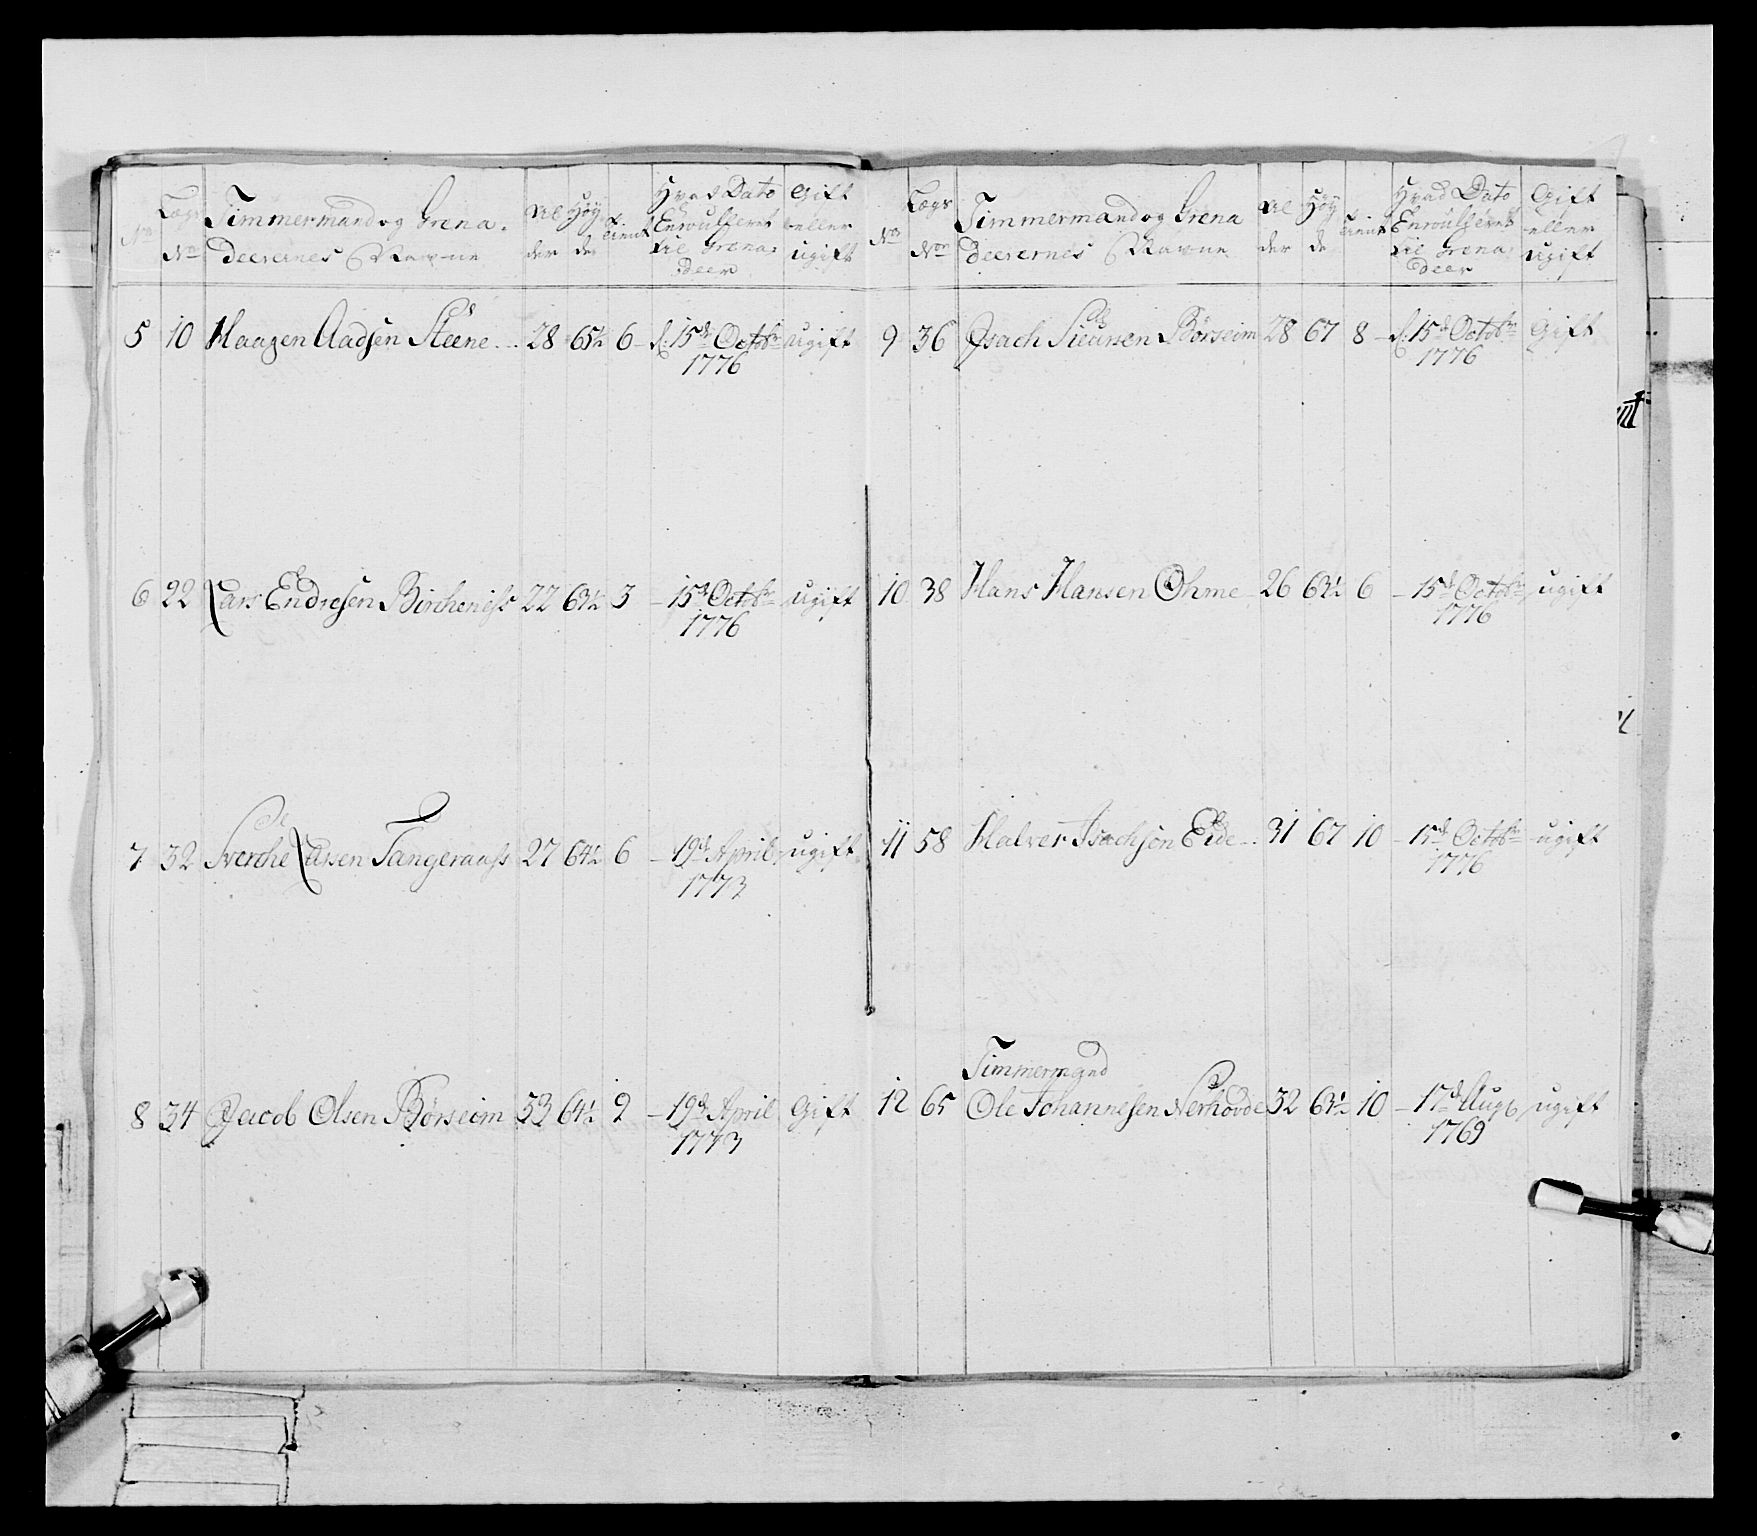 No Lægs No Timmermand og Grena- deerernes Navne Al der Høy de tient Hvad Dato Enroulleret til Grena- deer Gift eller ugift
5 10 Haagen Aadsen Steene 28 65½ 6 - d: 15de Octobr ugift
1776
6 22 Lars Endresen Bircheness 22 63½ 3 - 15de Octobr ugift
1776
7 32 Sverche Larsen Tangeraass 27 64½ 6 - 19de April ugift
1773
8 34 Jacob Olsen Børseim 33 64½ 9 - 19de April Gift
1773
No Lægs No Timmermand og Grena deerernes Navne Al der Høy de tient Hvad Dato Enroulleret til Grena- deer Gift eller ugift
9 36 Isach Siursen Børseim 28 67 8 - d: 15de Octobr Gift
1776
10 38 Hans Hansen Ohme 26 63½ 6 - 15de Octobr ugift
1776
11 58 Halver Isachsen Eide 31 67 10 - 15de Octobr ugift
1776
Timmermand
12 65 Ole Johannesen Nerhovde 32 63½ 10 - 17de Aug ugift
1769